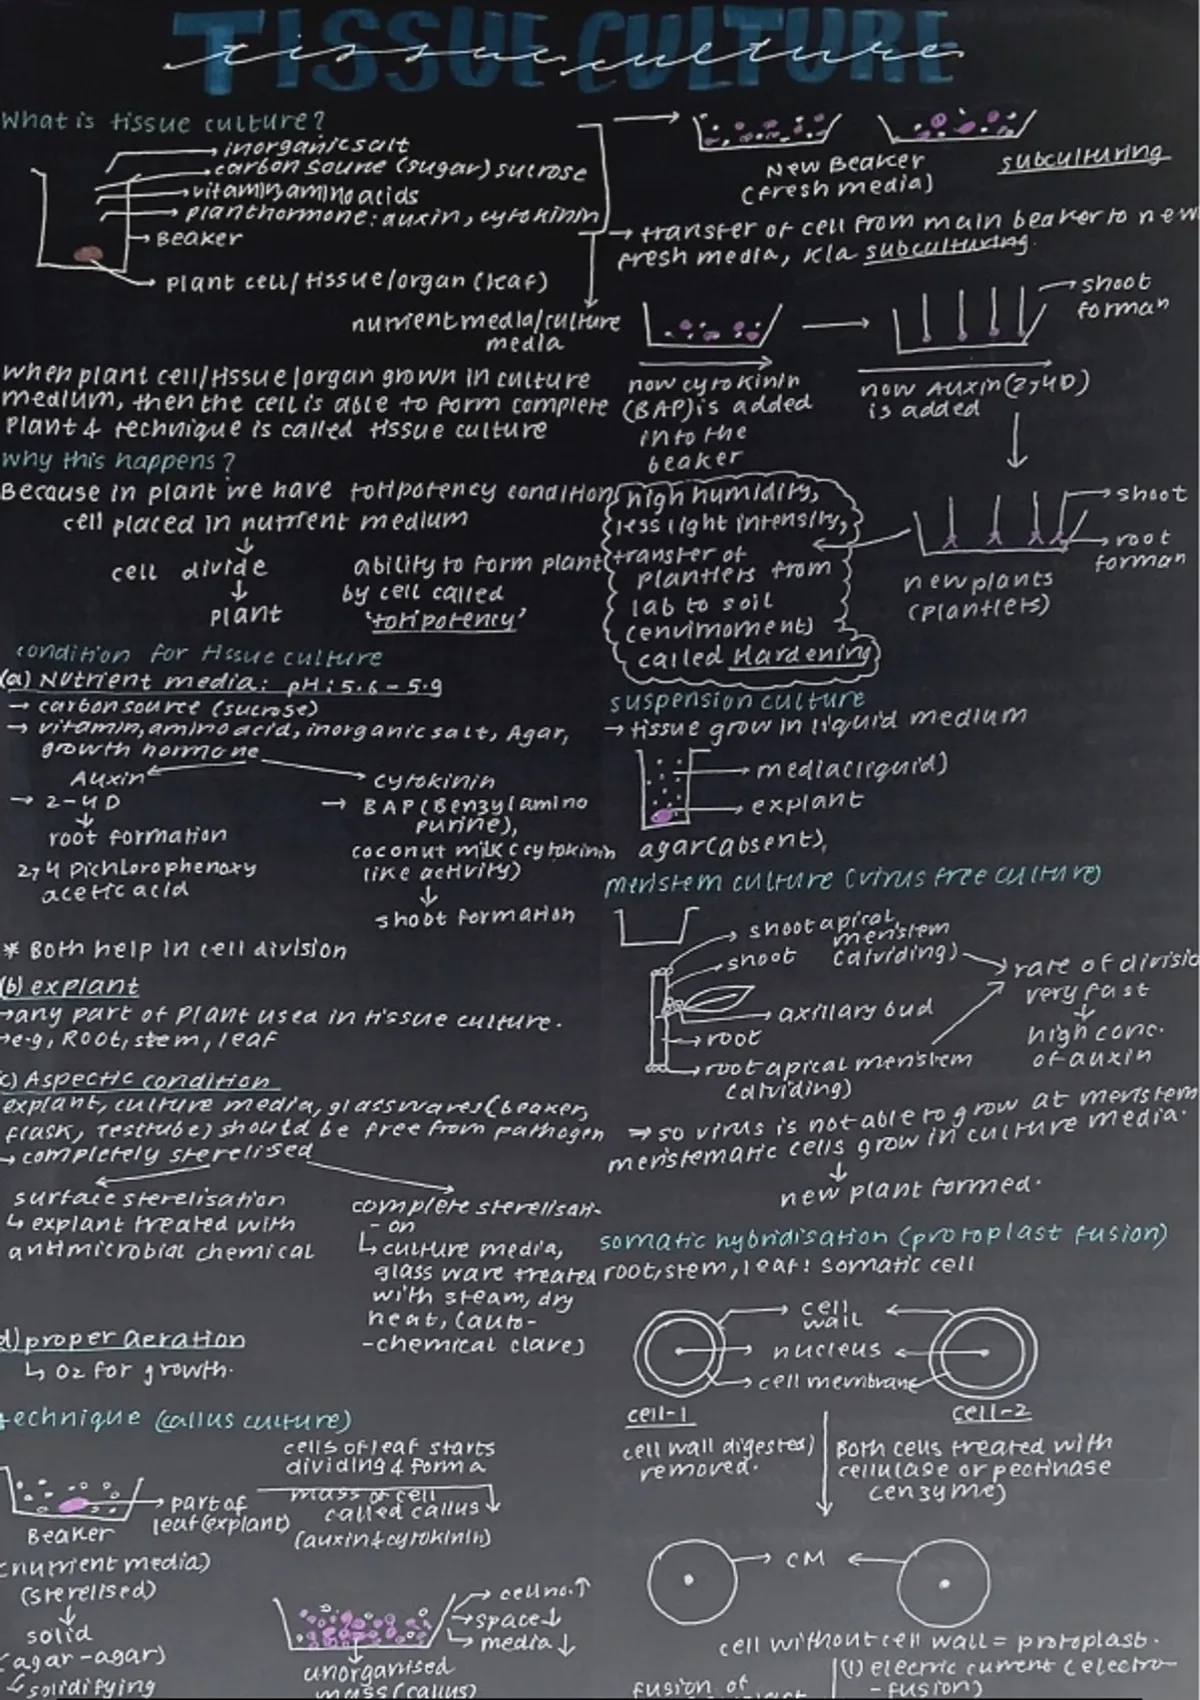 TISSUE CULTURE
tissue culture
What is tissue culture?
inorganic salt
carbon sourne (sugar) sucrose
vitamin, amino acids
plant hormone: auxin, cytokinin
Beaker
Plant cell/tissue/organ (leaf)
nutrient media/culture
media
when plant cell/tissue/organ grown in culture
medium, then the cell is able to form complete
Plant & technique is called tissue culture
why this happens?
Because in plant we have totipotency condition
cell placed in nutrient medium
cell divide
plant
ability to form plant
by cell called
'totipotency'
condition for tissue culture
(a) Nutrient media: pH: 5.6 - 5.9
→ carbon source (sucrose)
→ vitamin, amino acid, inorganic salt, Agar,
growth hormone
Auxin
→ 2-4D
root formation
2,4 Dichlorophenoxy
acetic acid
cytokinin
→ BAP (Benzyl amino
purine),
coconut milk (cytokinin
like activity)
shoot formation
* Both help in cell division
(b) explant
→ any part of Plant used in tissue culture.
→ e.g, Root, stem, leaf
c) Aspectic condition
explant, culture media, glasswares (beaker,
flask, Testtube) should be free from pathogen
→ completely sterelised
surface sterelisation
↳ explant treated with
antimicrobial chemical
complete sterelisati-
-on
↳ culture media,
glass ware treated
with steam, dry
heat, (auto-
-chemical clave)
d) proper aeration
↳ O2 for growth.
technique (callus culture)
Beaker
part of
leaf (explant)
cells of leaf starts
dividing & form a
mass of cell
called callus
(auxin & cytokinin)
(nutrient media)
(sterelised)
solid
(agar-agar)
↳ solidifying
cell no. ↑
space ↓
media ↓
unorganised
mass (callus)
New Beaker
(fresh media)
subculturing
→ transfer of cell from main beaker to new
fresh media, k/a subculturing.
shoot
forman
now cytokinin
(BAP) is added
into the
beaker
now Auxin (2,4D)
is added
high humidity,
less light intensity,
transfer of
plantlets from
lab to soil
(envirnoment)
called Hardening
shoot
root
forman
new plants
(plantlets)
suspension culture
→ tissue grow in liquid medium
media (liquid)
explant
agar (absent),
meristem culture (virus free culture)
shoot apical
meristem
(dividing)
shoot
axillary bud
root
root apical meristem
(dividing)
rate of divisio
very fast
high conc.
of auxin
⇒ so virus is not able to grow at meristem
meristematic cells grow in culture media.
new plant formed.
somatic hybridisation (protoplast fusion)
root, stem, leaf: somatic cell
cell
wall
nucleus
cell membrane
cell-1
cell-2
cell wall digested/
removed.
Both cells treated with
cellulase or pectinase
(enzyme)
CM
cell without cell wall = protoplast.
fusion of
(1) electric current (electro-
-fusion)